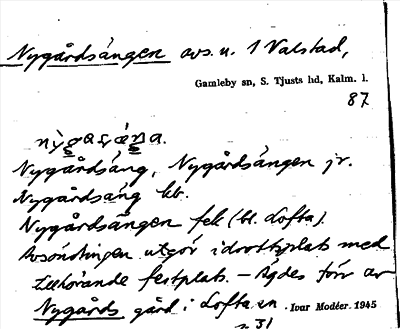 Nygårdsängen avs. u. 1 Valstad,
Gamleby sn, S. Tjusts hd, Kalm. l.
87
Nygårdsäng, Nygårdsängen jr.
Nygårdsäng kb.
Nygårdsängen fek (bl. Lofta).
Avsöndringen utgör idrottsplats med
tillhörande festplats. – Ägdes förr av
Nygårds gård i Lofta sn
. Ivar Modéer. 1945
n 31